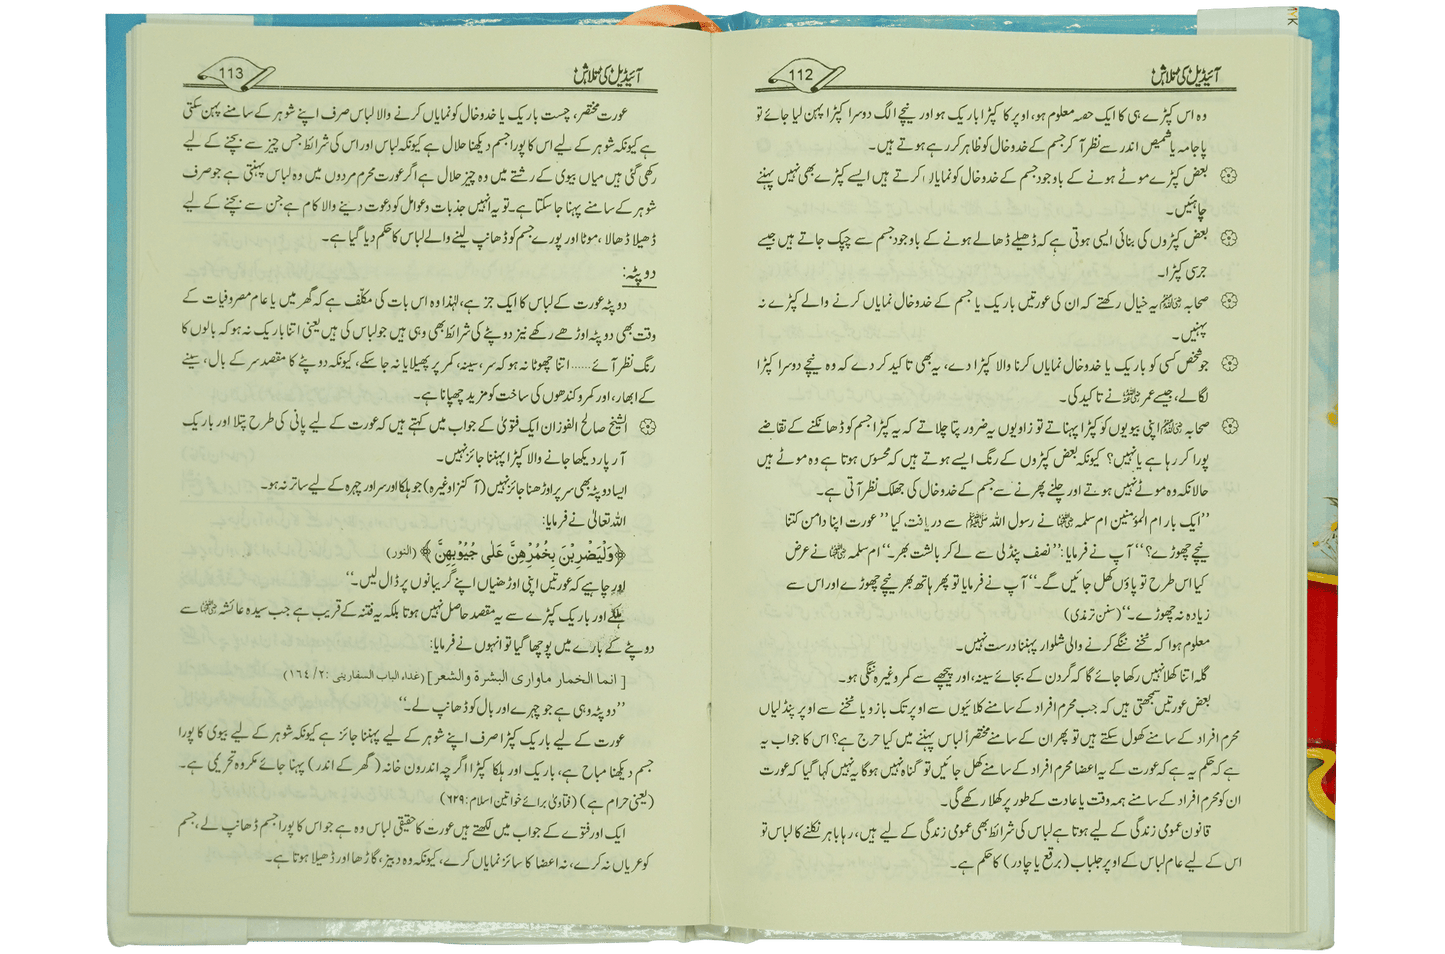 آئیڈیل کی تلاش
112
وہ اس کپڑے ہی کا ایک حصہ معلوم ہو، اوپر کا کپڑا باریک ہو اور نیچے الگ دوسرا کپڑا پہن لیا جائے تو
پاجامہ یا شمیض اندر سے نظر آ کر جسم کے خدوخال کو ظاہر کر رہے ہوتے ہیں۔
بعض کپڑے موٹے ہونے کے باوجود جسم کے خدوخال کو نمایاں کرتے ہیں ایسے کپڑے بھی نہیں پہننے
چاہئیں۔
بعض کپڑوں کی بنائی ایسی ہوتی ہے کہ ڈھیلے ڈھالے ہونے کے باوجود جسم سے چپک جاتے ہیں جیسے
جرسی کپڑا۔
صحابہ ﷢ یہ خیال رکھتے کہ ان کی عورتیں باریک یا جسم کے خدوخال نمایاں کرنے والے کپڑے نہ
پہنیں۔
جو شخص کسی کو باریک یا خدوخال نمایاں کرنا والا کپڑا دے، یہ بھی تاکید کر دے کہ وہ نیچے دوسرا کپڑا
لگالے، جیسے عمر ﷜ نے تاکید کی۔
صحابہ ﷢ اپنی بیویوں کو کپڑا پہناتے تو زاویوں یہ ضرور پتا چلاتے کہ یہ کپڑا جسم کو ڈھانکنے کے تقاضے
پورا کر رہا ہے یا نہیں؟ کیونکہ بعض کپڑوں کے رنگ ایسے ہوتے ہیں کہ محسوس ہوتا ہے وہ موٹے ہیں
حالانکہ وہ موٹے نہیں ہوتے اور چلنے پھرنے سے جسم کے خدوخال کی جھلک نظر آتی ہے۔
’’ایک بار ام المؤمنین ام سلمہ ﷞ نے رسول اللہ ﷺ سے دریافت کیا ’’عورت اپنا دامن کتنا
نیچے چھوڑے؟‘‘ آپ نے فرمایا: ’’نصف پنڈلی سے لے کر بالشت بھر۔‘‘ ام سلمہ ﷞ نے عرض
کیا اس طرح تو پاؤں کھل جائیں گے۔‘‘ آپ نے فرمایا تو پھر ہاتھ بھر نیچے چھوڑے اور اس سے
زیادہ نہ چھوڑے۔‘‘ (سنن ترمذی)
معلوم ہوا کہ ٹخنے ننگے کرنے والی شلوار پہننا درست نہیں۔
گلہ اتنا کھلا نہیں رکھا جائے گا کہ گردن کے بجائے سینہ، اور پیچھے سے کمر وغیرہ ننگی ہو۔
بعض عورتیں سمجھتی ہیں کہ جب محرم افراد کے سامنے کلائیوں سے اوپر تک بازو یا ٹخنے سے اوپر پنڈلیاں
محرم افراد کے سامنے کھول سکتے ہیں تو پھر ان کے سامنے مختصراً لباس پہننے میں کیا حرج ہے؟ اس کا جواب یہ
ہے کہ حکم یہ ہے کہ عورت کے یہ اعضا محرم افراد کے سامنے کھل جائیں تو گناہ نہیں ہوگا یہ نہیں کہا گیا کہ عورت
ان کو محرم افراد کے سامنے ہمہ وقت یا عادت کے طور پر کھلا رکھے گی۔
قانون عمومی زندگی کے لیے ہوتا ہے لباس کی شرائط بھی عمومی زندگی کے لیے ہیں، رہا باہر نکلنے کا لباس تو
اس کے لیے عام لباس کے اوپر جلباب (برقع یا چادر) کا حکم ہے۔
آئیڈیل کی تلاش
113
عورت مختصر، چست باریک یا خدوخال کو نمایاں کرنے والا لباس صرف اپنے شوہر کے سامنے پہن سکتی
ہے کیونکہ شوہر کے لیے اس کا پورا جسم دیکھنا حلال ہے کیونکہ لباس اور اس کی شرائط جس چیز سے بچنے کے لیے
رکھی گئی ہیں میاں بیوی کے رشتے میں وہ چیز حلال ہے اگر عورت محرم مردوں میں وہ لباس پہنتی ہے جو صرف
شوہر کے سامنے پہنا جا سکتا ہے۔ تو یہ انہیں جذبات و عوامل کو دعوت دینے والا کام ہے جن سے بچنے کے لیے
ڈھیلا ڈھالا، موٹا اور پورے جسم کو ڈھانپ لینے والے لباس کا حکم دیا گیا ہے۔
دوپٹہ:
دوپٹہ عورت کے لباس کا ایک جز ہے، لہٰذا وہ اس بات کی مکلّف ہے کہ گھر میں یا عام مصروفیات کے
وقت بھی دوپٹہ اوڑھے رکھے نیز دوپٹے کی شرائط بھی وہی ہیں جو لباس کی ہیں یعنی اتنا باریک نہ ہو کہ بالوں کا
رنگ نظر آئے...... اتنا چھوٹا نہ ہو کہ سر، سینہ، کمر پر پھیلایا نہ جا سکے، کیونکہ دوپٹے کا مقصد سر کے بال، سینے
کے ابھار، اور کمر و کندھوں کی ساخت کو مزید چھپانا ہے۔
الشیخ صالح الفوزان ایک فتویٰ کے جواب میں کہتے ہیں کہ عورت کے لیے پانی کی طرح پتلا اور باریک
آر پار دیکھا جانے والا کپڑا پہننا جائز نہیں۔
ایسا دوپٹہ بھی سر پر اوڑھنا جائز نہیں (آکنزا وغیرہ) جو ہلکا اور سر اور چہرہ کے لیے ساتر نہ ہو۔
اللہ تعالیٰ نے فرمایا:
﴿وَلْيَضْرِبْنَ بِخُمُرِهِنَّ عَلٰى جُيُوْبِهِنَّ﴾ (النور)
اور چاہیے کہ عورتیں اپنی اوڑھنیاں اپنے گریبانوں پر ڈال لیں۔‘‘
ہلکے اور باریک کپڑے سے یہ مقصد حاصل نہیں ہوتا بلکہ یہ فتنہ کے قریب ہے جب سیدہ عائشہ ﷞ سے
دوپٹے کے بارے میں پوچھا گیا تو انہوں نے فرمایا:
[انما الخمار ماواری البشرة والشعر] (غذاء الباب السفارینی: ۱۶۴/۲)
’’دوپٹہ وہی ہے جو چہرے اور بال کو ڈھانپ لے۔‘‘
عورت کے لیے باریک کپڑا صرف اپنے شوہر کے لیے پہننا جائز ہے کیونکہ شوہر کے لیے بیوی کا پورا
جسم دیکھنا مباح ہے، باریک اور ہلکا کپڑا اگرچہ اندرون خانہ (گھر کے اندر) پہنا جائے مکروہ تحریمی ہے۔
(یعنی حرام ہے) (فتاویٰ برائے خواتین اسلام: ۶۲۹)
ایک اور فتوے کے جواب میں لکھتے ہیں عورت کا حقیقی لباس وہ ہے جو اس کا پورا جسم ڈھانپ لے، جسم
کو عریاں نہ کرے، نہ اعضا کا سائز نمایاں کرے، کیونکہ وہ دبیز، گاڑھا اور ڈھیلا ہوتا ہے۔